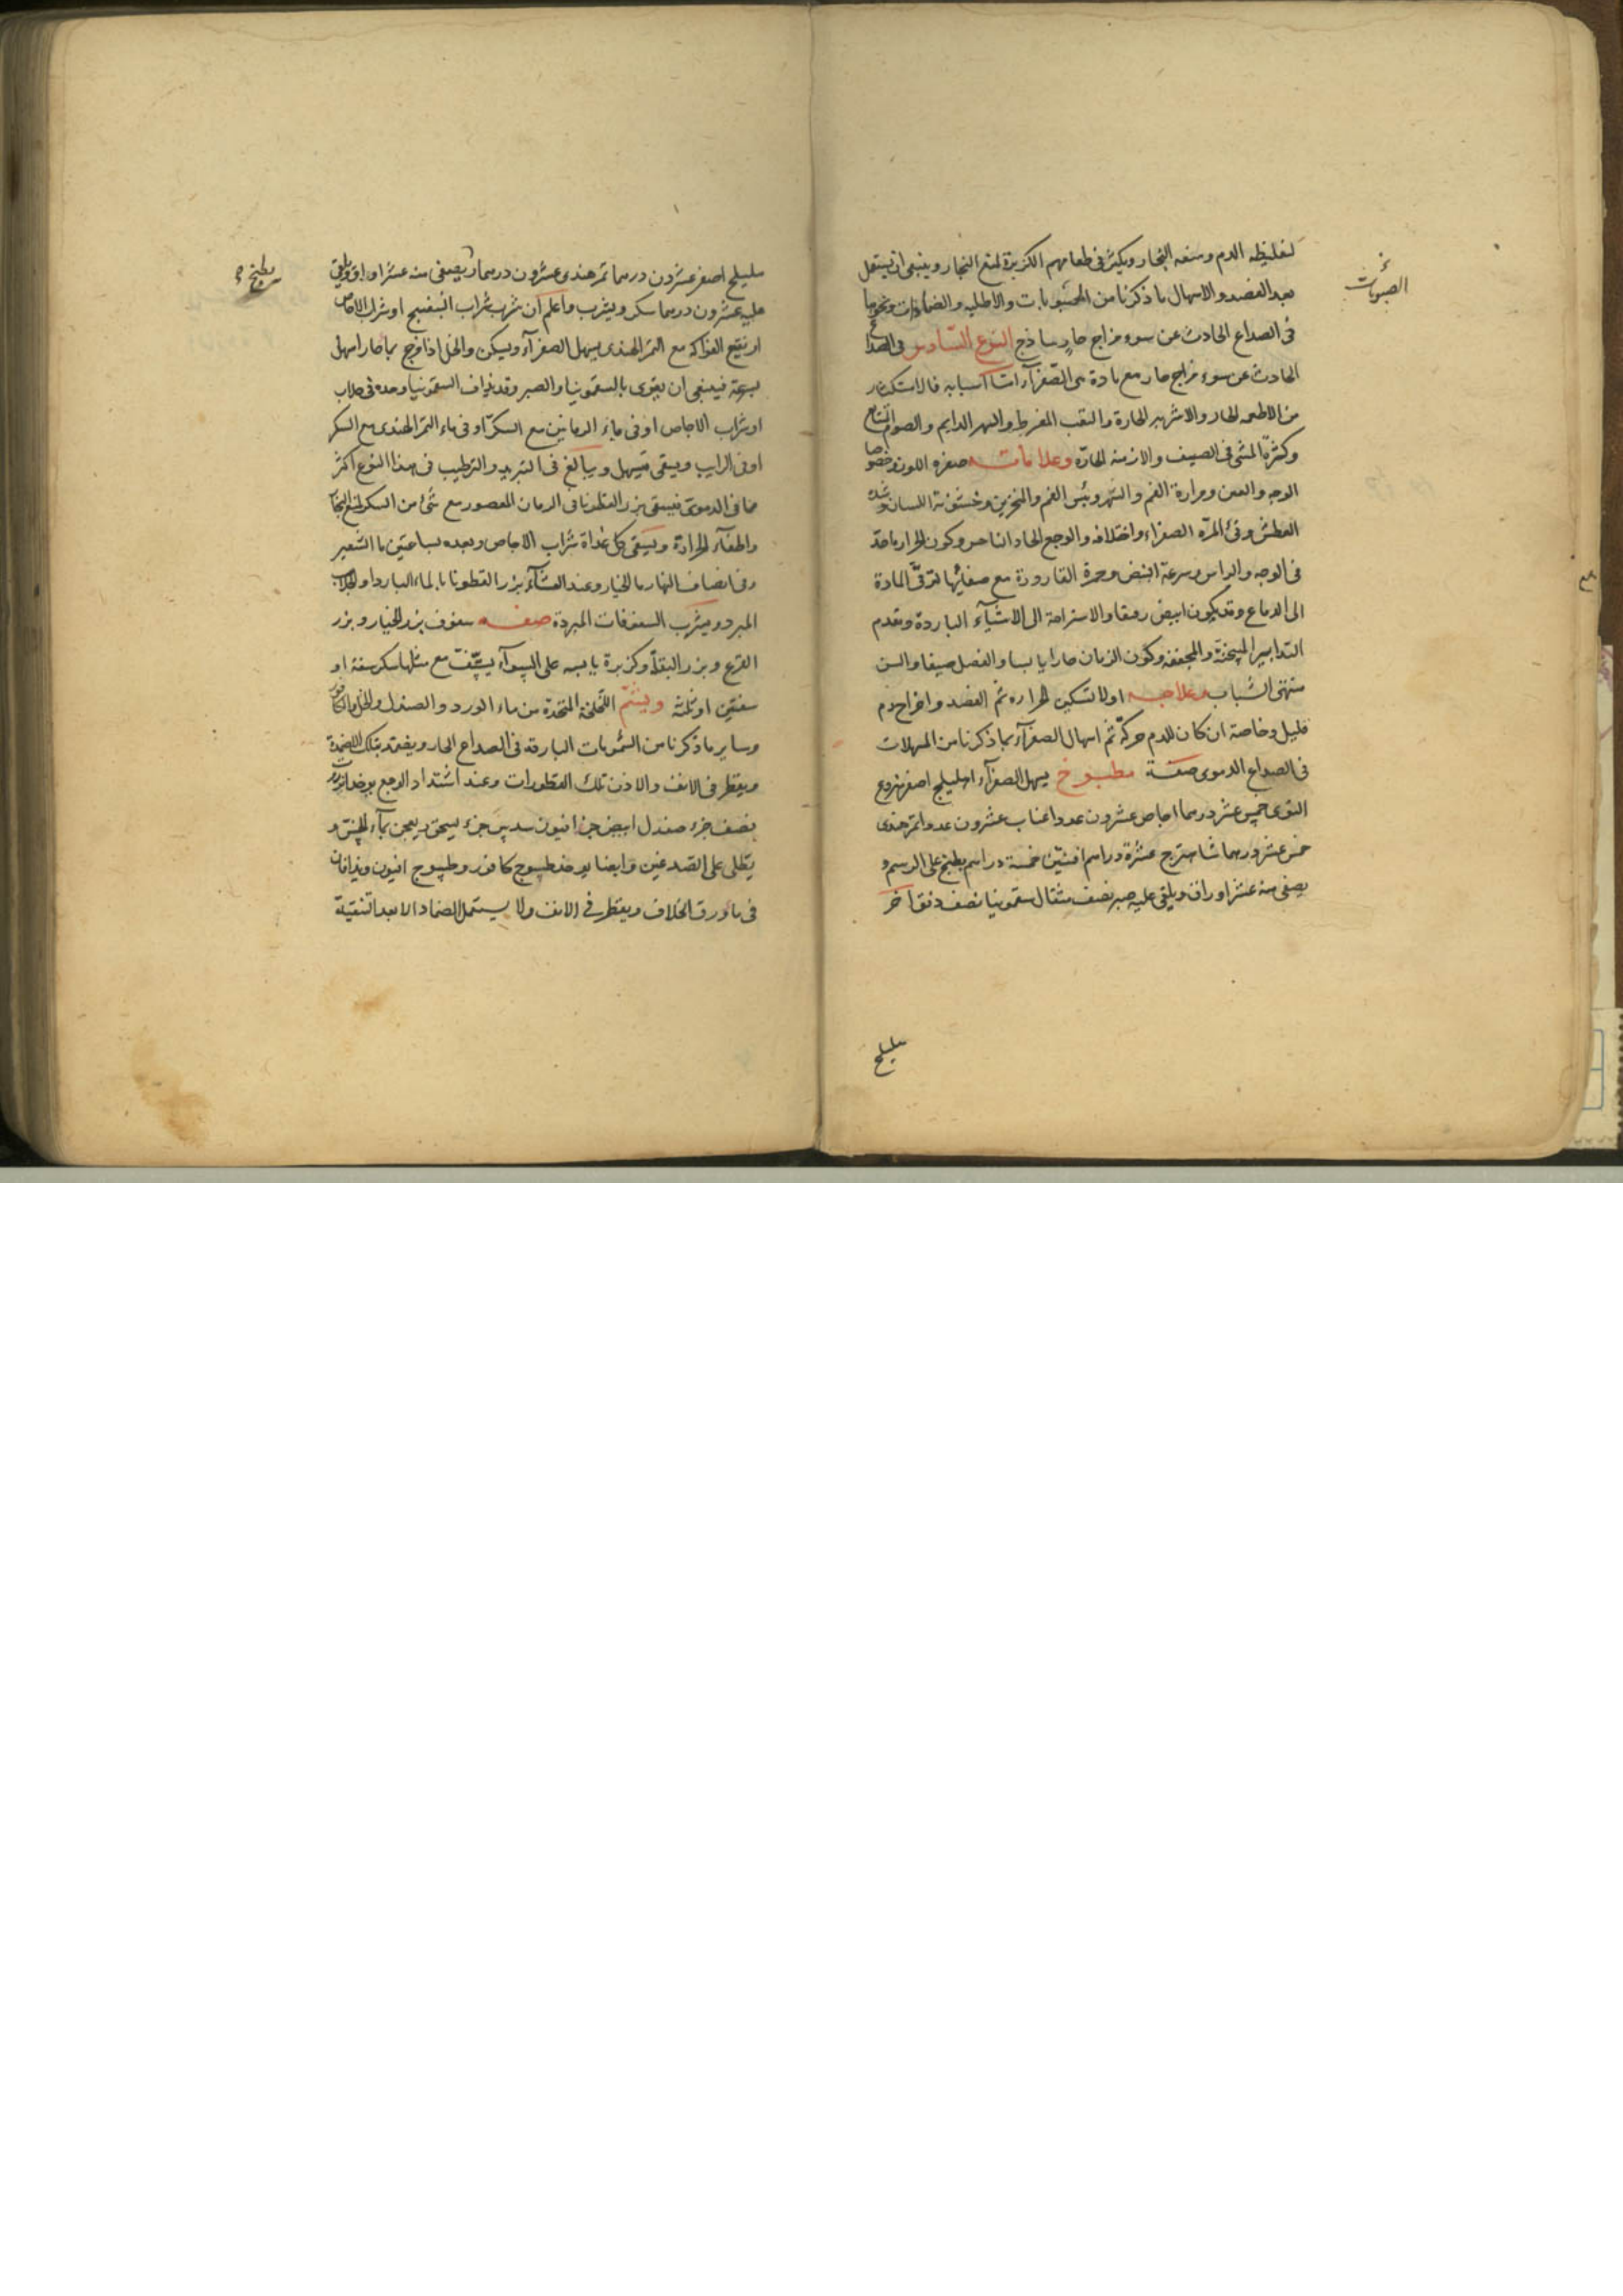 لتغليظه الدم ومنعه البخار ويكثر فى طعامهم الكزبرة لمنع البخار وينبغى ان يستعمل
بعد الفصد والاسهال ما ذكرنا من المشمومات والاطليه والضمادات ونحوها
فى الصداع الحادث عن سوء مزاج حار ساذج النوع السادس فى الصداع
الحادث عن سوء مزاج حار مع مادة هى الصفرآء اما اسبابه فالاستكثار
من الاطعمه الحاره والاشربه الحارة والتعب المفرط والسهر الدايم والصوم المتتابع
وكثرة المشى فى الصيف والازمنه الحارّه وعلاماته صفره اللون وخصوصا
الوجه والعين ومرارة الفم والسهر ويبس الفم والمنخرين وخشونة اللسان وشدة
العطش وقئ المرّه الصفراء واختلافه والوجع الحاد الناخس وكون الحرارة حادة
فى الوجه والراس وسرعة النبض وحمرة القارورة مع صفائها لترقى المادة
الى الدماغ وقد يكون ابيض رقيقا والاستراحة الى الاشيآء الباردة وتقدم
التدابير المسخنة والمجففه وكون الزمان حارا يابسا والفصل صيفا والسن
منتهى الشباب وعلاجه اولا تسكين الحراره ثم الفصد واخراج دم
قليل وخاصة ان كان للدم حركة ثم اسهال الصفرآء بما ذكرنا من المسهلات
فى الصداع الدموى صفة مطبوخ يسهل الصفرآء اهليلج اصفر منزوع
النوى خمس عشر درهما اجاص عشرون عددا عناب عشرون عددا تمر هندى
خمس عشر درهما شاهترج عشرة دراهم افسنتين خمسة دراهم يطبخ على الرسم و
يصفى منه عشر اوراق ويلقى عليه صبر نصف مثقال سقمونيا نصف دنق اخر
هليلج
هليلج اصفر عشرون درهما تمر هندى عشرون درهما يصفى منه عشر اواق ويلقى
عليه عشرون درهما سكر ويشرب واعلم ان شرب شراب البنفسج او شراب الاجاص
او نقيع الفواكه مع التمر الهندى يسهل الصفرآء ويسكن والخل اذا مزج بماء حار اسهل
بسرعة فينبغى ان يقوى بالسقمونيا والصبر وقد يذاف السقمونيا وحده فى جلاب
او شراب الاجاص او فى ماء الرمانين مع السكر او فى ماء التمر الهندى مع السكر
او فى الرايب ويسقى فيسهل ويبالغ فى التبريد والترطيب فى هذا النوع اكثر
مما فى الدموى فيسقى بزر القطونا فى الرمان المعصور مع شئ من السكر لمنع البخار
واطفآء الحرارة ويسقى كل غداة شراب الاجاص وبعده بساعتين ما الشعير
وفى انصاف النهار ما الخيار وعند العشآء بزر القطونا بالماء البارد او الجلاب
المبرد ويشرب السفوفات المبردة صفه سفوف بزر الخيار وبزر
القرع وبزر البقلة وكزبرة يابسه على السوآء يستف مع مثلها سكر سفة او
سفتين او ثلثه ويشم اللخلخة المتخذة من ماء الورد والصندل والخل والكافور
وساير ما ذكرنا من المشمومات الباردة فى الصداع الحار ويضمد بتلك الاضمدة
ويقطر فى الانف والاذن تلك القطورات وعند اشتداد الوجع يوخذ
نصف جزء صندل ابيض جزء افيون سدس جزء يسحق ويعجن بمآء الخس و
يطلى على الصدغين وايضا يوخذ طسوج كافور وطسوج افيون ويذافان
فى ماء ورق الخلاف ويقطر فى الانف ولا يستعمل الضماد الا بعد التنقية